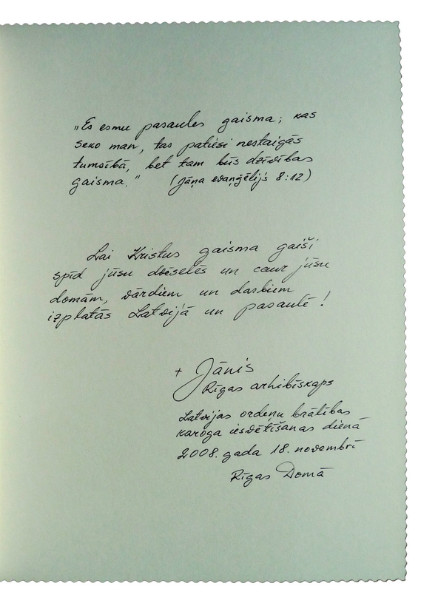 "Es esmu pasaules gaisma; kas
seko man, tas patiesi nestaigās
tumsībā, bet tam būs dzīvības
gaisma." (Jāņa evaņģēlijs 8:12)
Lai Kristus gaisma gaiši
spīd jūsu dvēselēs un caur jūsu
domām, vārdiem un darbiem
izplatās Latvijā un pasaulē!
+ Jānis
Rīgas arhibīskaps
Latvijas ordeņu brālības
karoga iesvētīšanas dienā
2008. gada 18. novembrī
Rīgas Domā